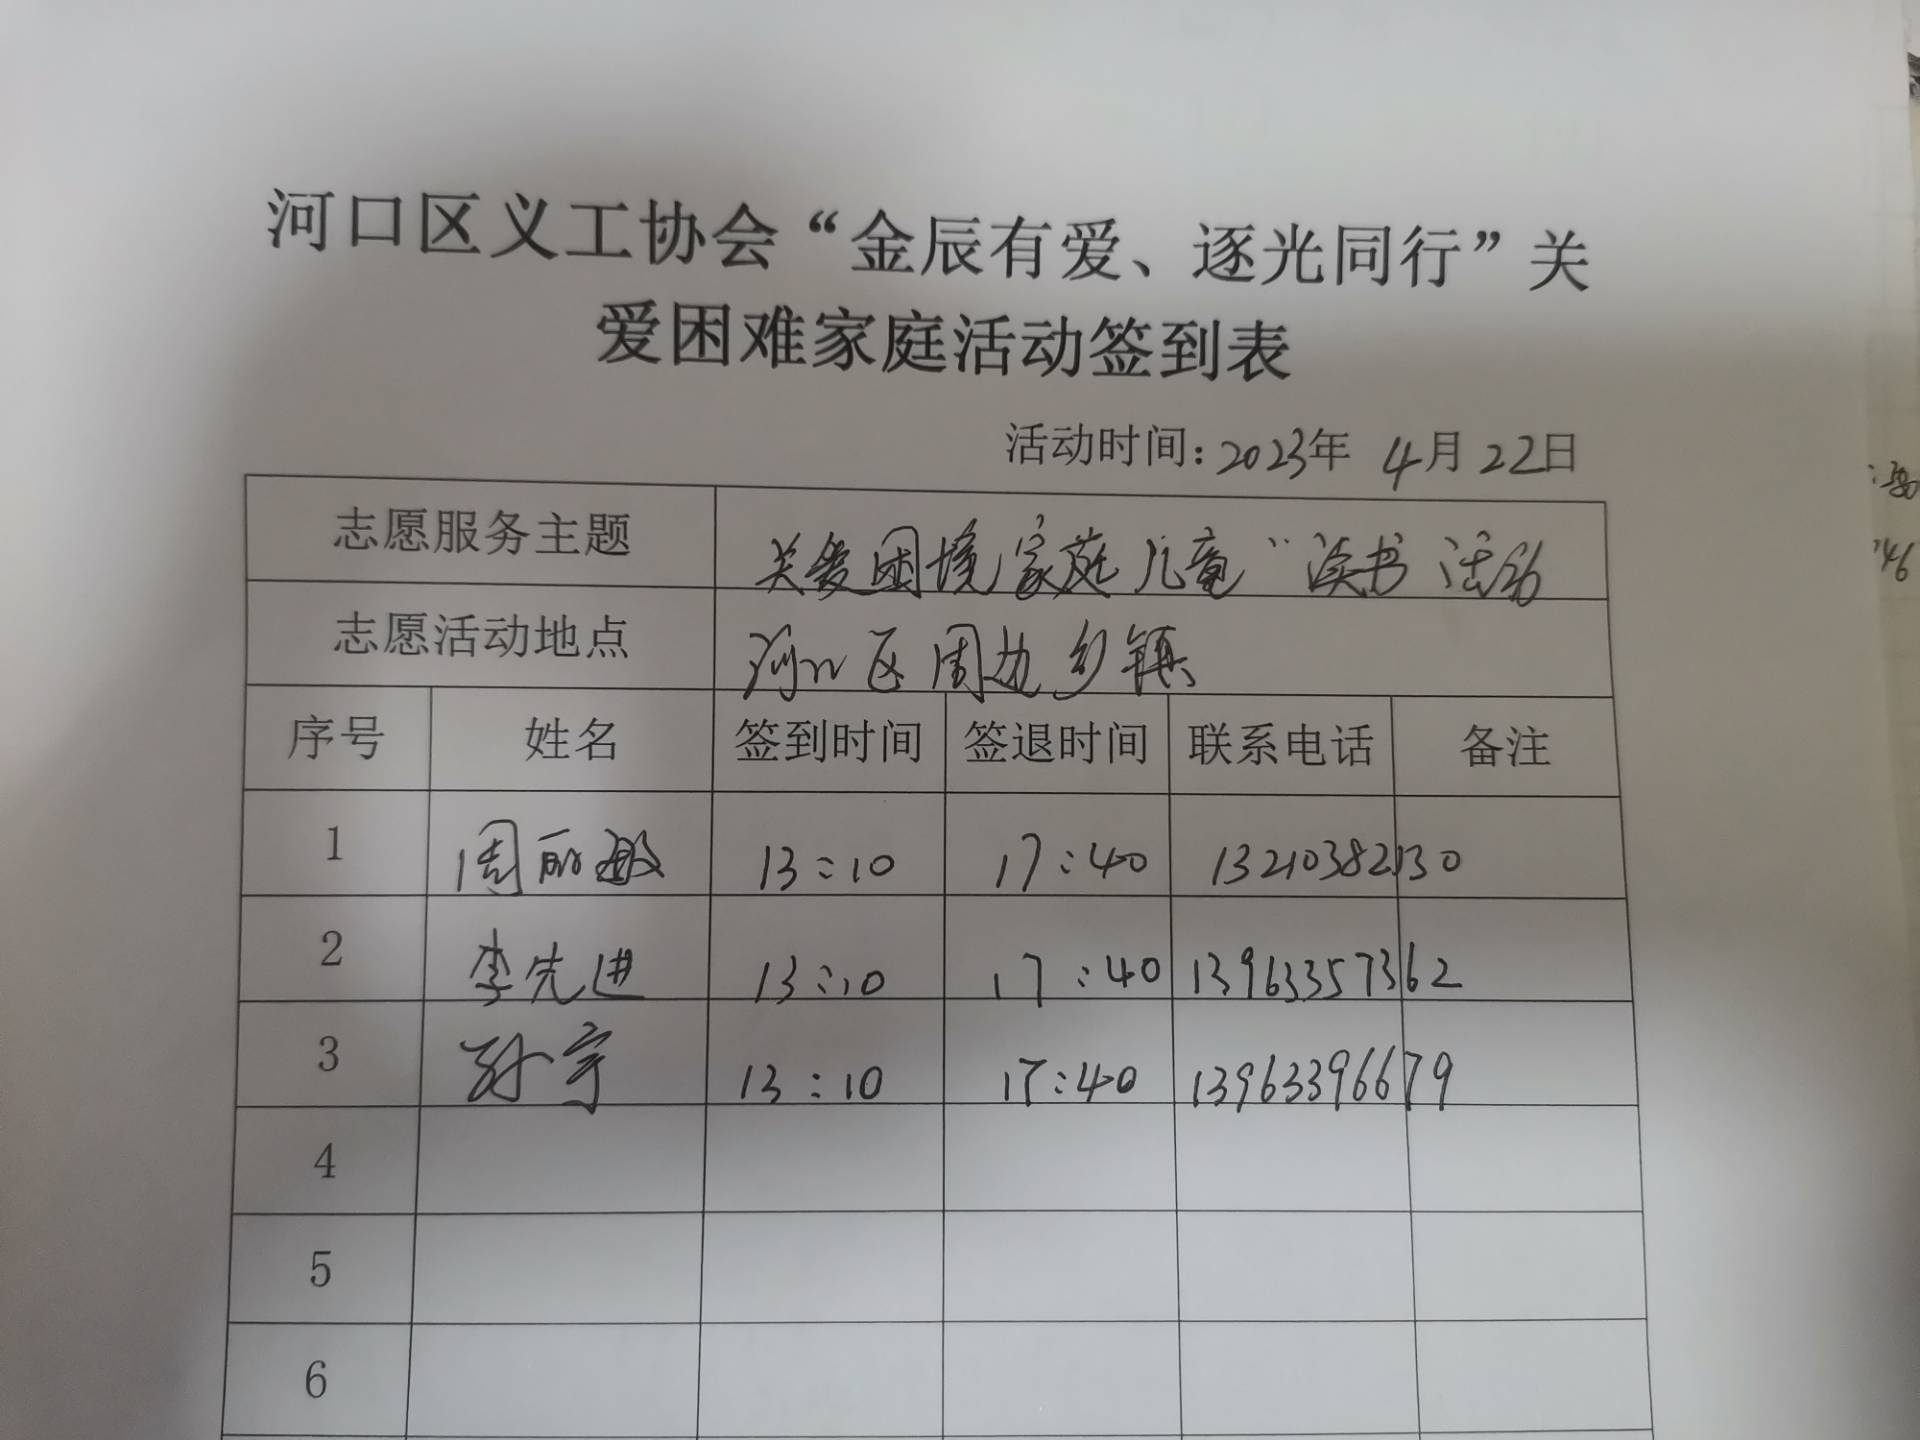 河口区义工协会“金辰有爱、逐光同行”关
爱困难家庭活动签到表
活动时间：2023年 4月22日
志愿服务主题 关爱困境家庭儿童“读书活动
志愿活动地点 河口区周边乡镇
序号 姓名 签到时间 签退时间 联系电话 备注
1 周丽敏 13:10 17:40 13210382130
2 李先进 13:10 17:40 13963357362
3 孙宇 13:10 17:40 13963396679
4
5
6